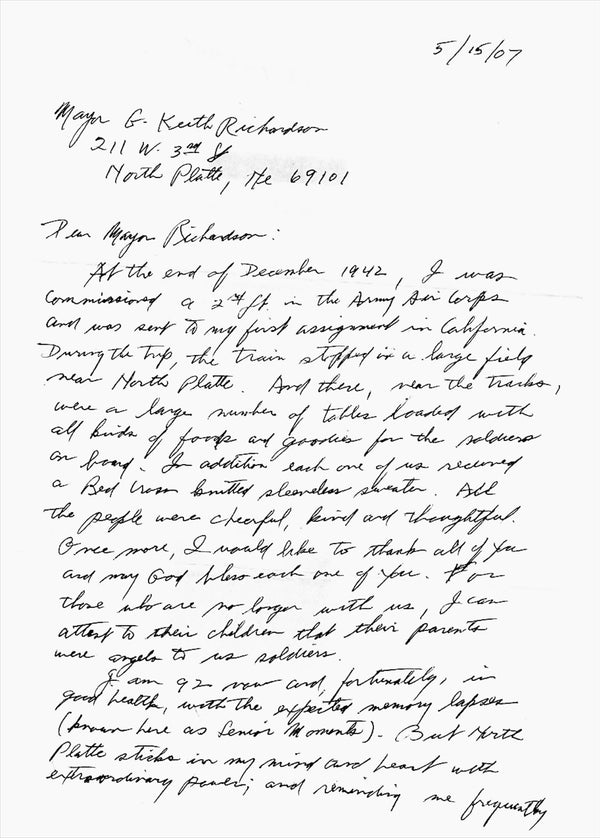 5/15/07
Mayor G. Keith Richardson
211 W. 3rd St
North Platte, Ne 69101
Dear Mayor Richardson:
At the end of December 1942, I was
commissioned a 2nd Lt. in the Army Air Corps
and was sent to my first assignment in California.
During the trip, the train stopped in a large field
near North Platte. And there, near the tracks,
were a large number of tables loaded with
all kinds of foods and goodies for the soldiers
on board. In addition each one of us received
a Red Cross knitted sleeveless sweater. All
the people were cheerful, kind and thoughtful.
Once more, I would like to thank all of you
and may God bless each one of you. For
those who are no longer with us, I can
attest to their children that their parents
were angels to us soldiers.
I am 92 now and, fortunately, in
good health, with the expected memory lapses
(known here as Senior Moments). But North
Platte sticks in my mind and heart with
extraordinary power; and reminding me frequently